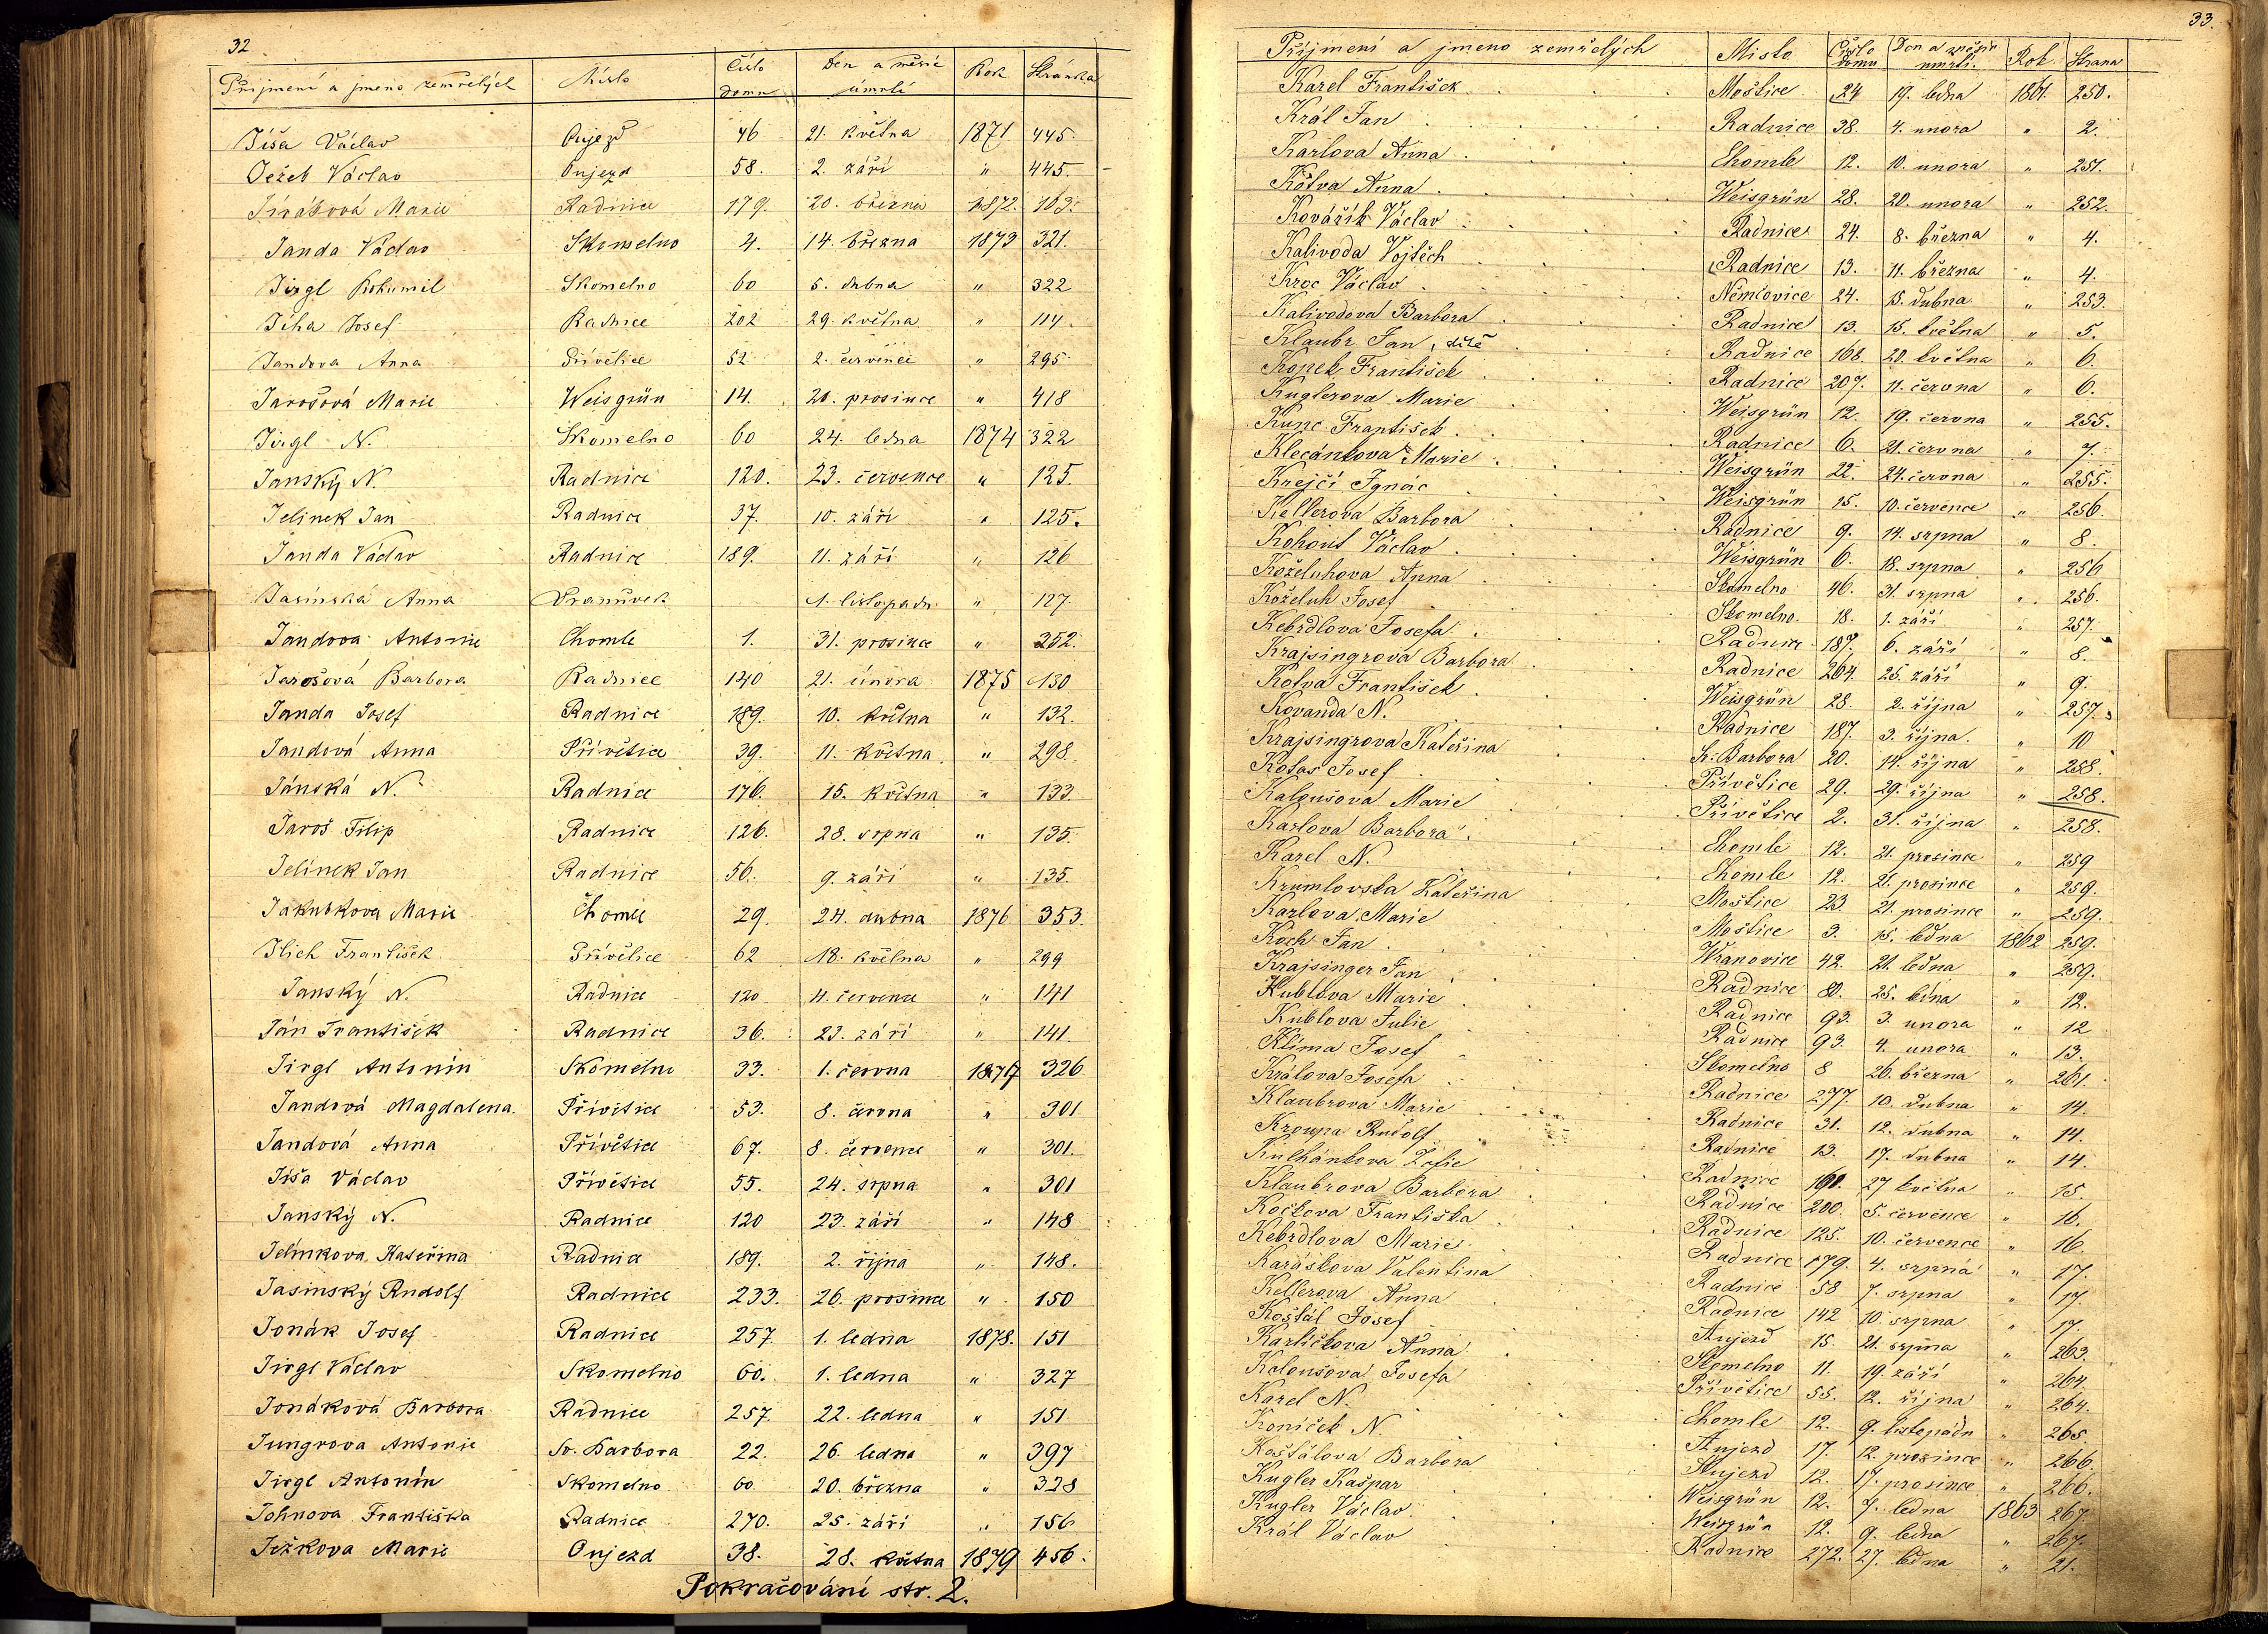 32
Příjmení a jmeno zemřelých Místo Číslo domu Den a měsíc úmrtí Rok Stránka
Jíša Václav Oujezd 46 21. května 1871 445.
Ježek Václav Oujezd 58. 2. září " 445.
Jirásková Marie Radnice 179. 20. března 1872. 103.
Janda Václav Skomelno 4. 14. března 1873 321.
Jirgl Bohumil Skomelno 60 5. dubna " 322
Jíha Josef Radnice 202 29. května " 114.
Jandova Anna Přívětice 52 2. července " 295
Jarošová Marie Weisgrün 14. 20. prosince " 418
Jirgl N. Skomelno 60 24. ledna 1874 322
Janský N. Radnice 120. 23. července " 125.
Jelinek Jan Radnice 37. 10. září " 125.
Janda Václav Radnice 189. 11. září " 126
Jasinská Anna Vranůvek 1. listopadu " 127.
Jandova Antonie Chomle 1. 31. prosince " 352.
Jarošová Barbora Radnice 140 21. února 1875 130
Janda Josef Radnice 189. 10. května " 132.
Jandová Anna Přívětice 39. 11. května " 298.
Jánská N. Radnice 176. 15. května " 133.
Jaroš Filip Radnice 126. 28. srpna " 135.
Jelínek Jan Radnice 56. 9. září " 135.
Jakubkova Marie Chomle 29. 24. dubna 1876 353.
Jlich František Přívětice 62 18. května " 299
Janský N. Radnice 120 4. července " 141
Ján František Radnice 36. 23. září " 141.
Jirgl Antonín Skomelno 33. 1. června 1877 326
Jandová Magdalena. Přívětice 53. 8. června " 301
Jandová Anna Přívětice 67. 8. července " 301.
Jíša Václav Přívětice 55. 24. srpna " 301
Janský N. Radnice 120 23. září " 148
Jelínkova Kateřina Radnice 189. 2. října " 148.
Jasinský Rudolf Radnice 233. 26. prosince " 150
Jonák Josef Radnice 257. 1. ledna 1878. 151
Jirgl Václav Skomelno 60. 1. ledna " 327
Jonáková Barbora Radnice 257. 22. ledna " 151
Jungrova Antonie Sv. Barbora 22. 26. ledna " 397
Jirgl Antonín Skomelno 60. 20. března " 328
Johnova Františka Radnice 270. 25. září " 156
Ježkova Marie Oujezd 38. 28. května 1879 456.
Pokračování str. 2.
33.
Příjmení a jmeno zemřelých Misto Čislo domu Den a měsíc umrti. Rok Strana
Karel František Moštice 24 19. ledna 1861. 250.
Král Jan Radnice 38. 4. unora " 2.
Karlova Anna Chomle 12. 10. unora " 251.
Kotva Anna Weisgrün 28. 20. unora " 252.
Kovářík Václav Radnice 24. 8. března " 4.
Kalivoda Vojtěch Radnice 13. 11. března " 4.
Kroc Václav Němčovice 24. 15. dubna " 253.
Kalivodova Barbora Radnice 13. 15. května " 5.
Klaubr Jan, dítě Radnice 168. 20. května " 6.
Kopek František Radnice 207. 11. června " 6.
Kuglerova Marie Weisgrün 12. 19. června " 255.
Kunc František Radnice 6. 21. června " 7.
Klecánkova Marie Weisgrün 22. 24. června " 255.
Krejčí Ignác Weisgrün 15. 10. července " 256.
Kellerova Barbora Radnice 9. 14. srpna " 8.
Kohout Václav Weisgrün 6. 18. srpna " 256
Koželuhova Anna Skomelno 46. 31. srpna " 256.
Koželuh Josef Skomelno. 18. 1. září " 257.
Kebrdlova Josefa Radnice 187. 6. září " 8.
Krajsingrova Barbora Radnice 264. 25. září " 9.
Kotva František Weisgrün 28. 2. října " 257.
Kovanda N. Radnice 187. 3. října " 10
Krajsingrova Kateřina S. Barbora 20. 14. října " 258.
Kotas Josef Přívětice 29. 29. října " 258.
Kaloušová Marie Přívětice 2. 31. října " 258.
Karlova Barbora Chomle 12. 21. prosince " 259
Karel N. Chomle 12. 21. prosince " 259.
Krumlovska Kateřina Moštice 23. 21. prosince " 259.
Karlova Marie Moštice 3. 15. ledna 1862 259.
Koch Jan Wranovice 42. 21. ledna " 259.
Krajsinger Jan Radnice 80. 25. ledna " 12.
Kublova Marie Radnice 93. 3. unora " 12
Kublova Julie Radnice 93. 4. unora " 13.
Klima Josef Skomelno 8 26. března " 261.
Králova Josefa Radnice 277. 10. dubna " 14.
Klaubrova Marie Radnice 31. 12. dubna " 14.
Kroupa Rudolf Radnice 13. 17. dubna " 14.
Kulhánkova Žofie Radnice 27 května " 15.
Klaubrova Barbora Radnice 200. 5. července " 16.
Kočkova Františka Radnice 125. 10. července " 16.
Kebrdlova Marie Radnice 179. 4. srpna " 17.
Karáskova Valentina Radnice 58 7. srpna " 17.
Kellerova Anna Radnice 142 10. srpna " 17.
Koštál Josef Aujezd 15. 21. srpna " 263.
Karlíčkova Anna Skomelno 11. 19. září " 264.
Kaloušová Josefa Přívětice 55. 12. října " 264.
Karel N. Chomle 12. 9. listopadu " 265
Koníček N. Aujezd 17. 12. prosince " 266.
Koštálova Barbora Aujezd 12. 17. prosince " 266.
Kugler Kašpar Weisgrün 12. 7. ledna 1863 267.
Kugler Václav Weisgrün 12. 9. ledna " 267.
Král Václav Radnice 272. 27. ledna " 21.